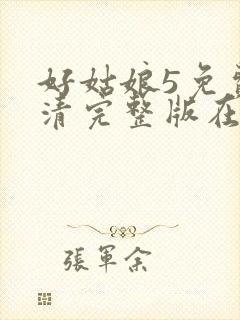 好姑娘5免
清完整版在
張軍余